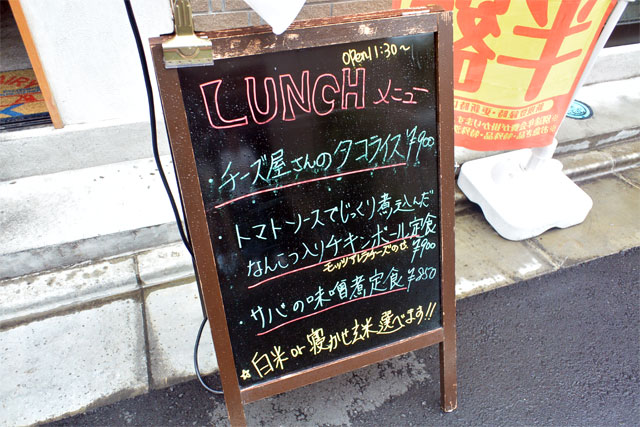 OPEN 11:30〜
LUNCH メニュー
・チーズ屋さんのタコライス ¥900
・トマトソースでじっくり煮込んだ
なんこつ入りチキンボール定食
モッツァレラチーズのせ ¥900
・サバの味噌煮定食 ¥850
☆白米 or 寝かせ玄米 選べます!!
半